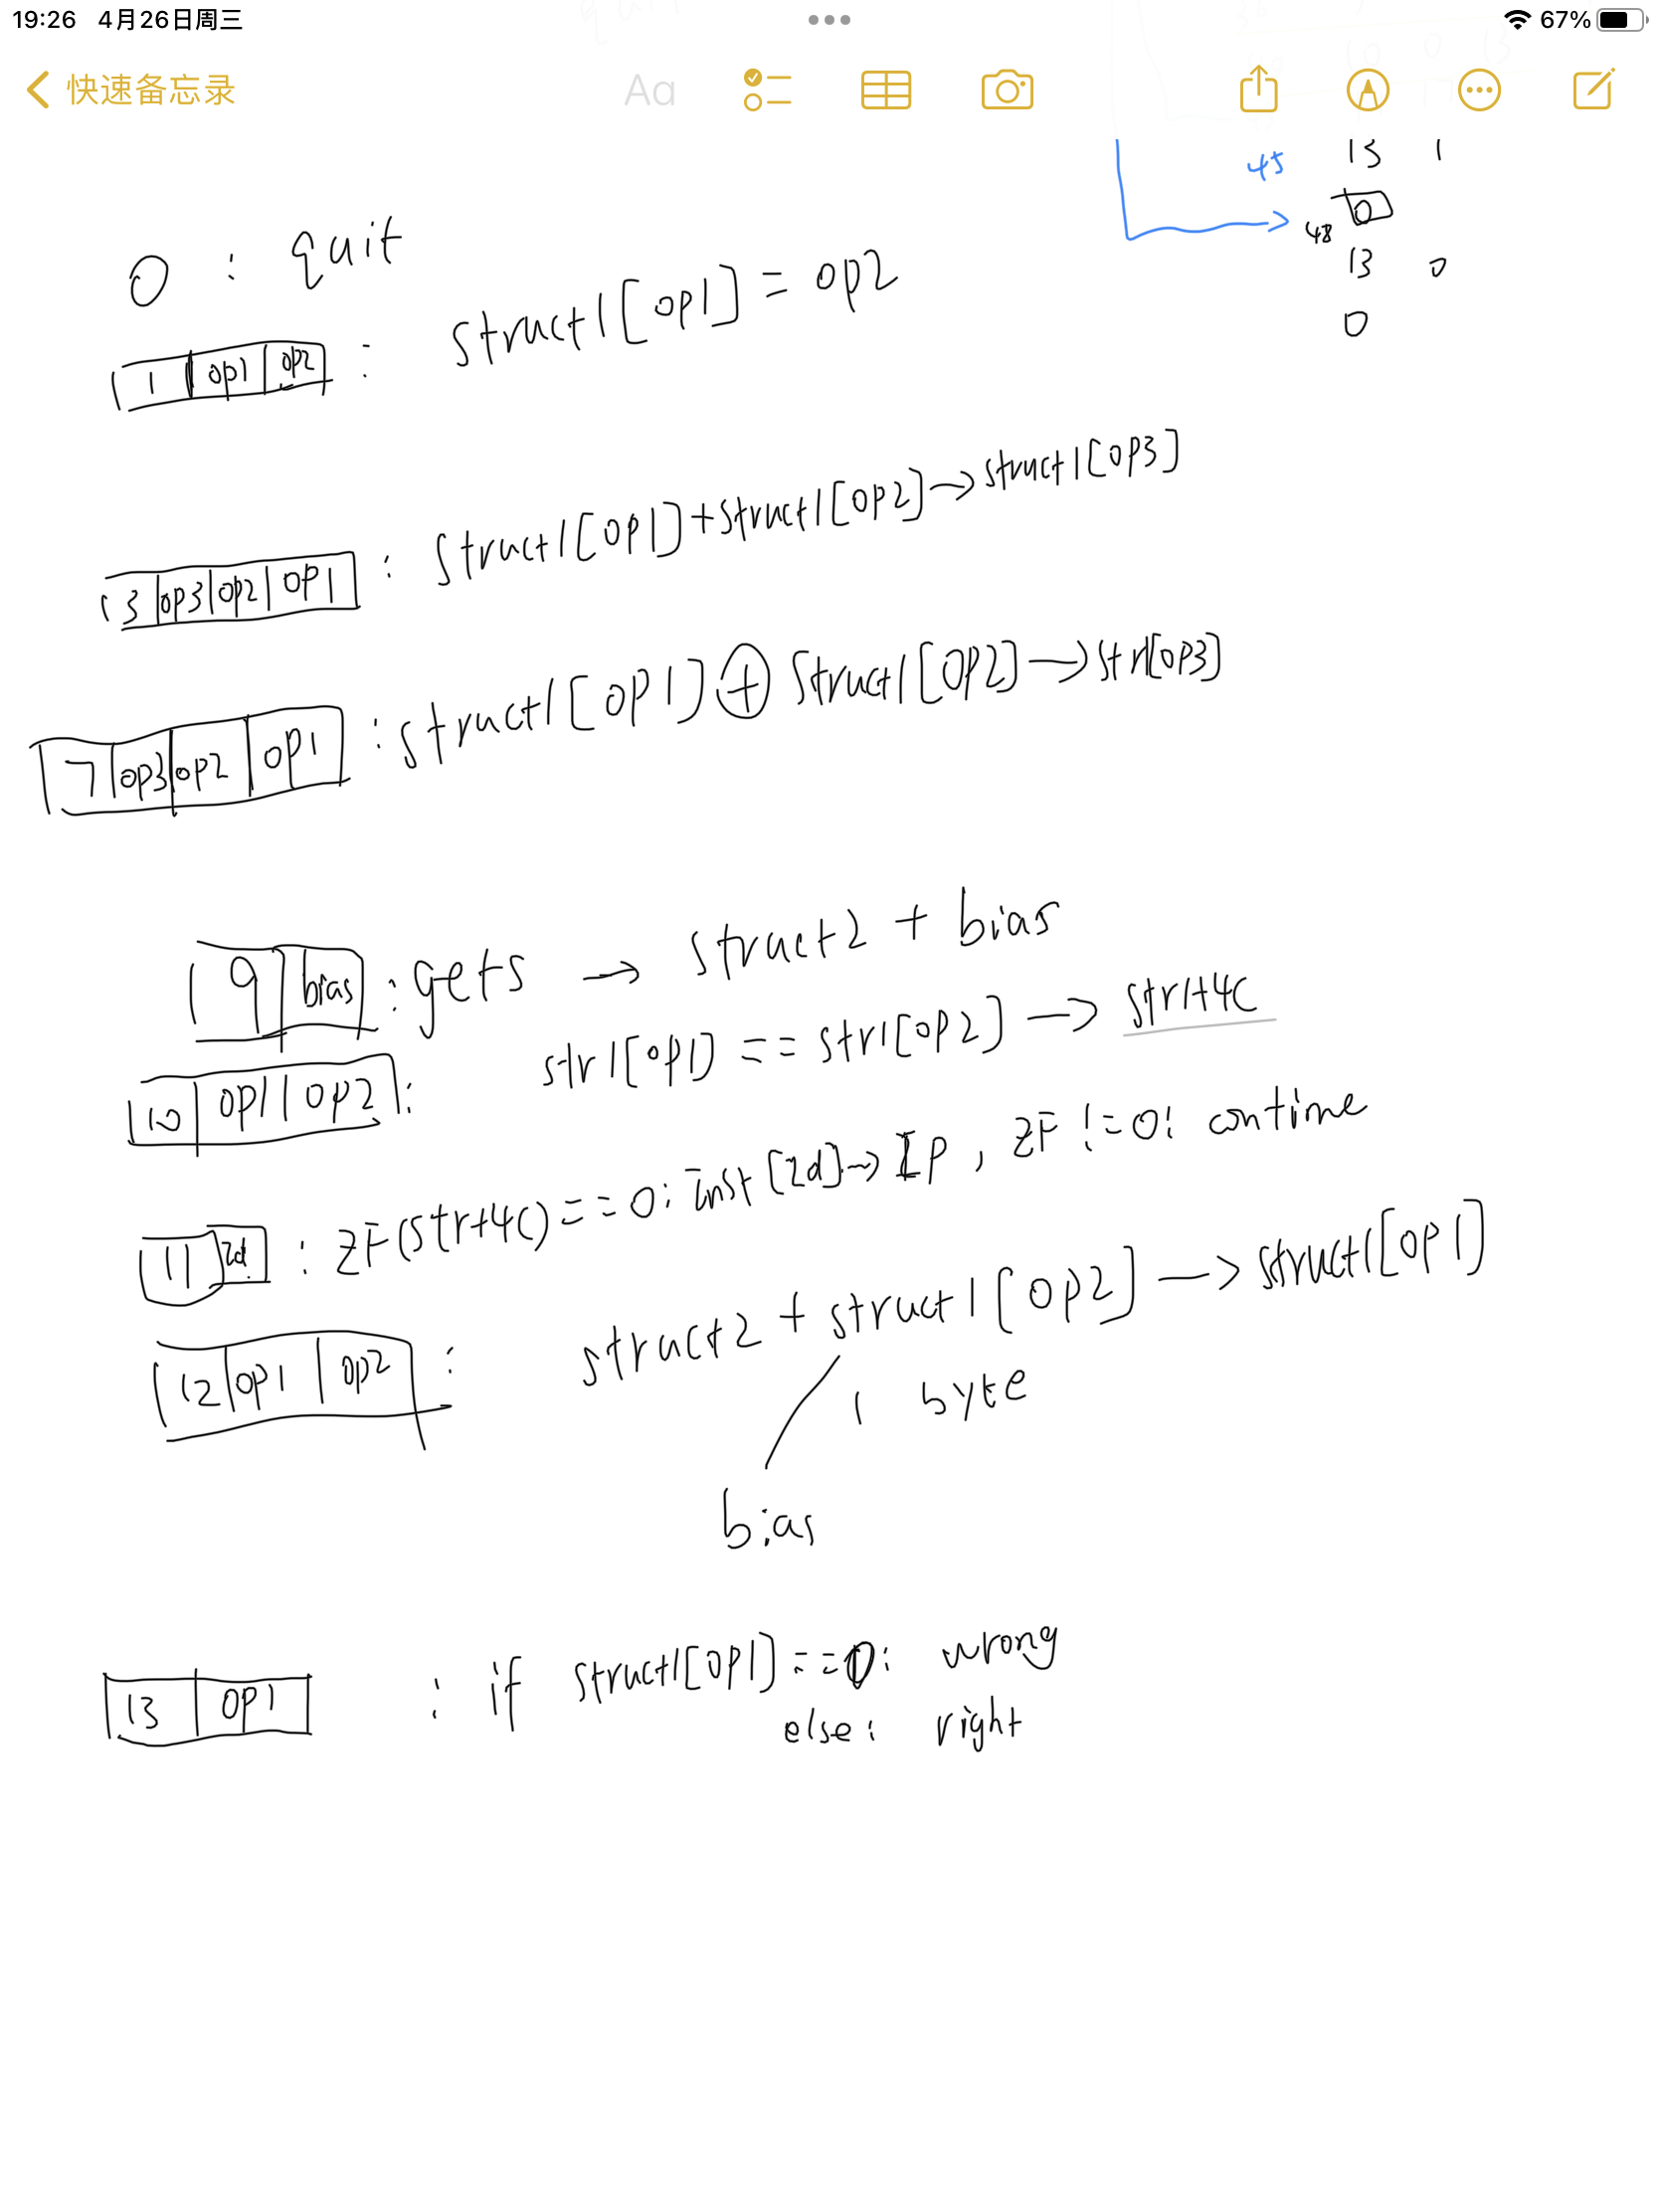 19:26 4月26日周三
67%
快速备忘录
Aa
45 13 1
0
48
13 0
0
0 : quit
1 op1 op2 : struct1[op1] = op2
3 op3 op2 op1 : struct1[op1]+struct1[op2]→struct1[op3]
7 op3 op2 op1 : struct1[op1] ⊕ struct1[op2]→str1[op3]
9 bias : gets → struct2 + bias
10 op1 op2 : str1[op1] == str1[op2] → str1+4C
11 2d : ZF(str+4C)==0: inst[2d]→IP, ZF !=0: continue
12 op1 op2 : struct2 + struct1[op2] → struct1[op1]
1 byte
bias
13 op1 : if struct1[op1]==0: wrong
else: right